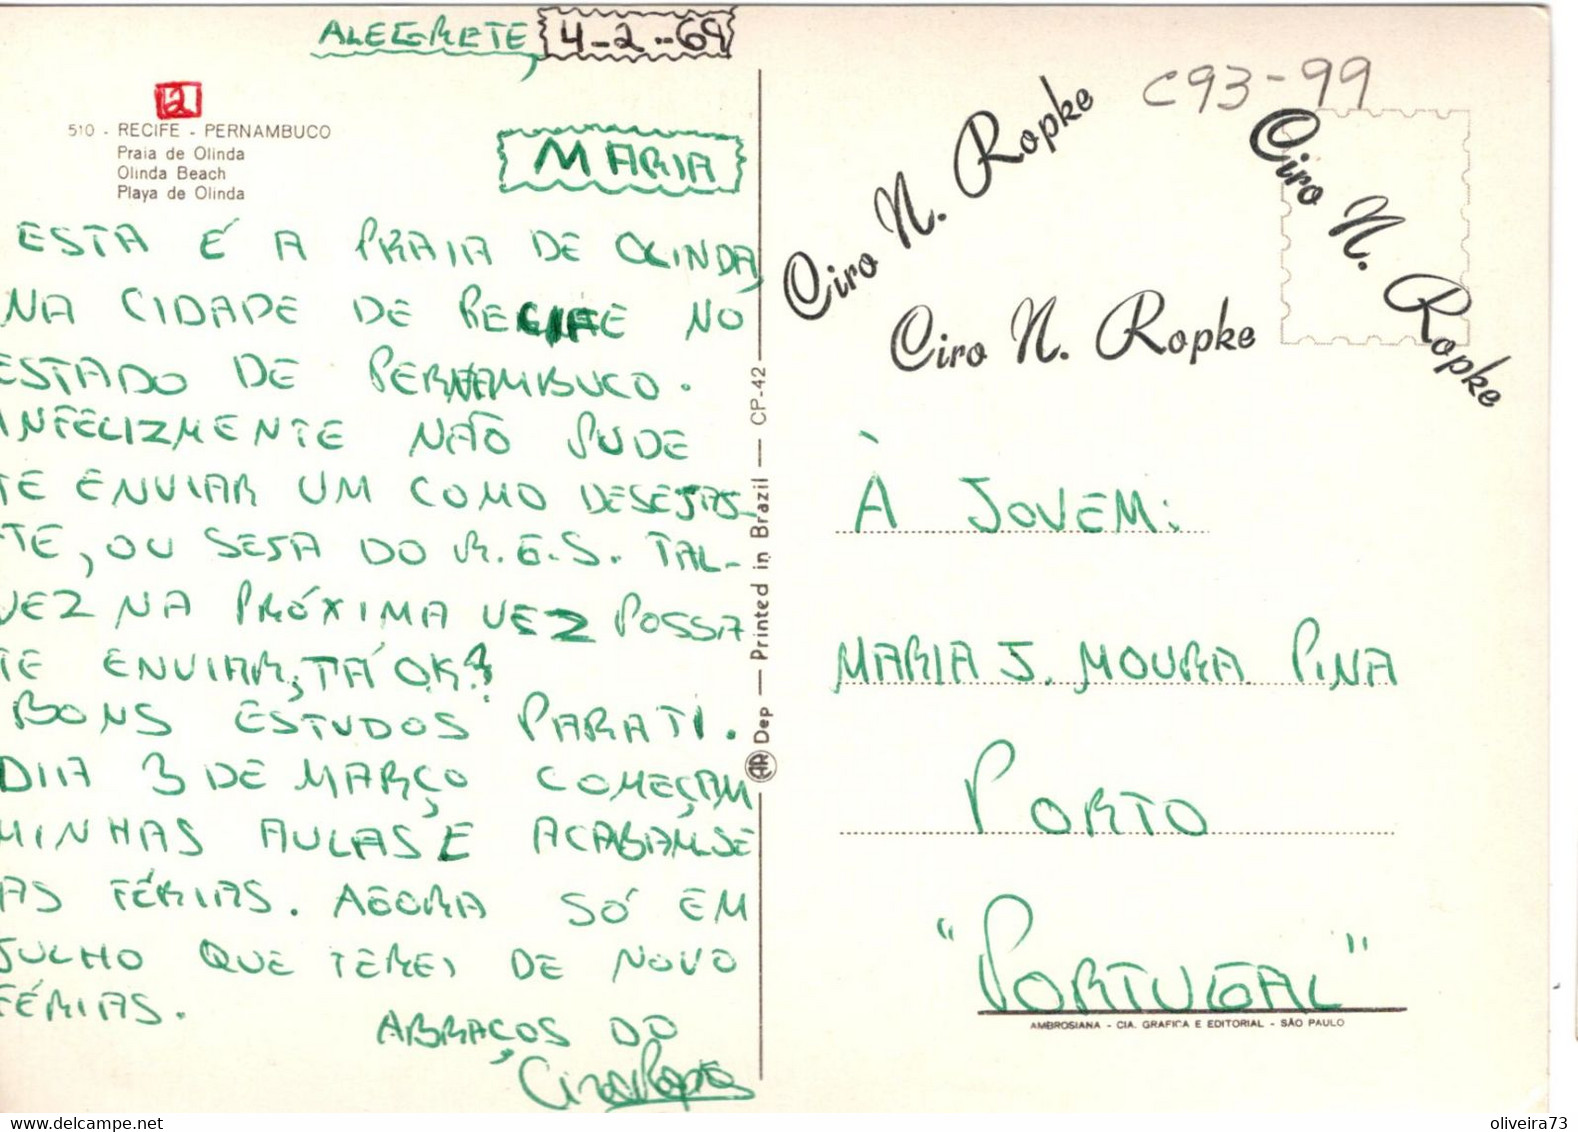 ALEGRETE, 4-2-69
2
510 - RECIFE - PERNAMBUCO
Praia de Olinda
Olinda Beach
Playa de Olinda
MARIA
ESTA É A PRAIA DE OLINDA,
NA CIDADE DE RECIFE NO
ESTADO DE PERNAMBUCO.
INFELIZMENTE NÃO PUDE
TE ENVIAR UM COMO DESEJAS-
TE, OU SEJA DO R.G.S. TAL-
VEZ NA PRÓXIMA VEZ POSSA
TE ENVIAR, TÁ OK?
BONS ESTUDOS PARA TI.
DIA 3 DE MARÇO COMEÇAM
MINHAS AULAS E ACABAM-SE
AS FÉRIAS. AGORA SÓ EM
JULHO QUE TEREI DE NOVO
FÉRIAS.
ABRAÇOS DO
Ciro Ropke
AR Dep — Printed in Brazil — CP-42
C93-99
Ciro N. Ropke
Ciro N. Ropke
Ciro N. Ropke
À JOVEM:
MARIA J. MOURA PINA
PORTO
"PORTUGAL"
AMBROSIANA - CIA. GRAFICA E EDITORIAL - SÃO PAULO
oliveira73